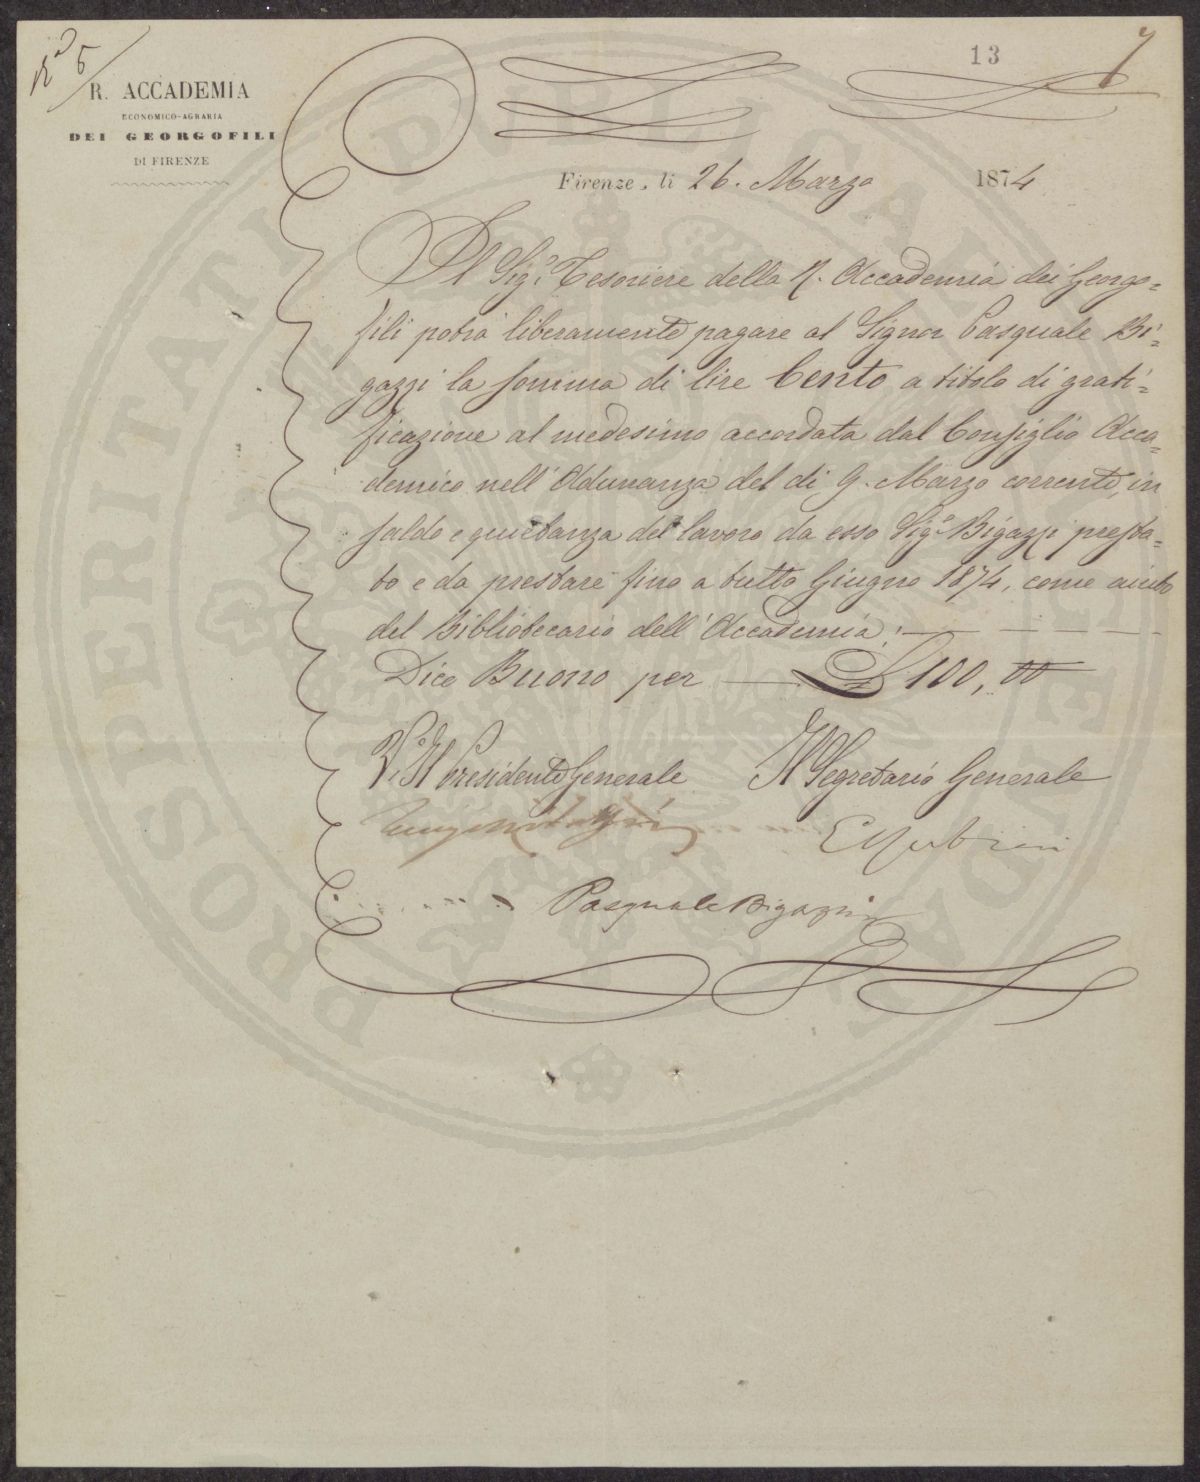 13
7
R. ACCADEMIA
ECONOMICO-AGRARIA
DEI GEORGOFILI
DI FIRENZE
Firenze, li 26. Marzo 1874
Il Sig.e Tesoriere della R. Accademia dei Georgo=
fili potrà liberamente pagare al Signor Pasquale Bi=
gazzi la somma di lire Cento a titolo di grati=
ficazione al medesimo accordata dal Consiglio Acca=
demico nell'Adunanza del dì 9. Marzo corrente, in
saldo e quietanza del lavoro da esso Sig.e Bigazzi presta=
to e da prestare fino a tutto Giugno 1874, come aiuto
del Bibliotecario dell'Accademia:
Dico Buono per £ 100,00
V.o Il Presidente Generale Il Segretario Generale
Pasquale Bigazzi
PROSPERITATI PUBLICAE AUGENDAE